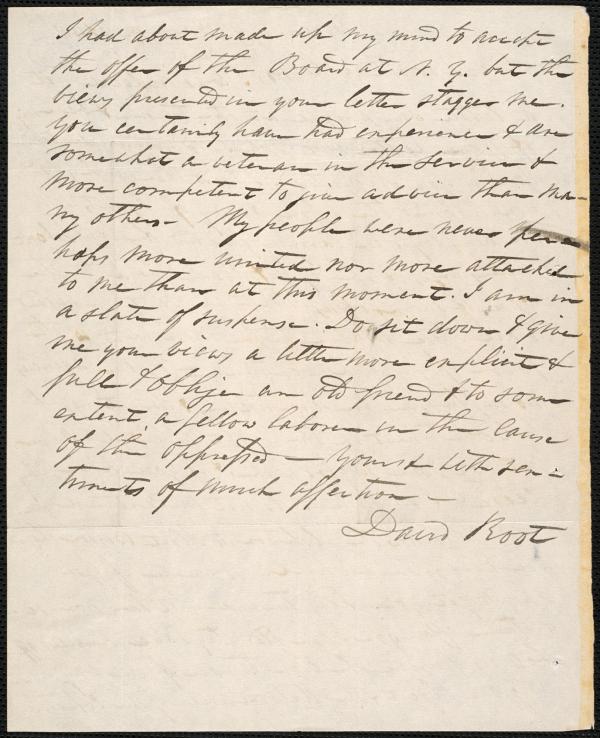 I had about made up my mind to accept
the offer of the Board at N. Y. but the
views presented in your letter stagger me.
You certainly have had experience & are
somewhat a veteran in the service &
more competent to give advice than ma-
ny others - My people were never per-
haps more united nor more attached
to me than at this moment. I am in
a state of suspense. Do sit down & give
me your views a little more explicit &
full & oblige an old friend & to some
extent a fellow laborer in the cause
of the oppressed - Yours with sen-
timents of much affection -
David Root